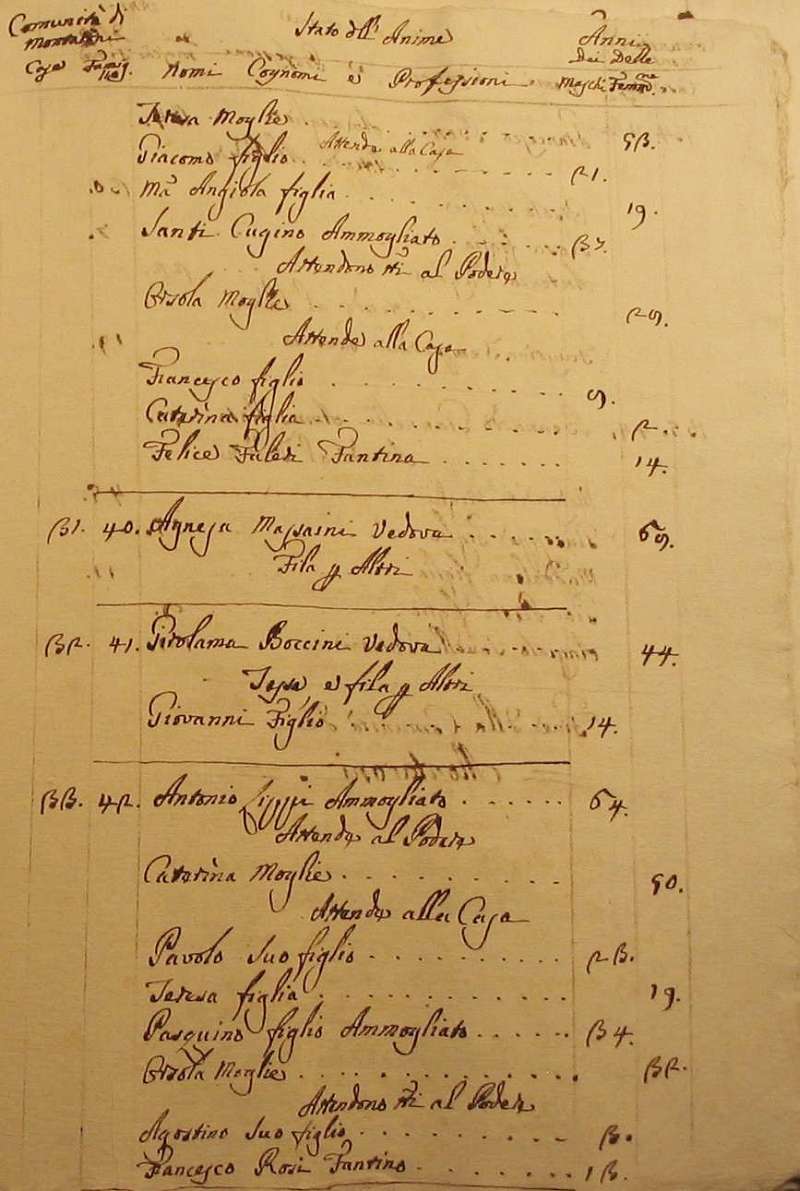 Comunità di Stato dell' Anime Anni
Montaini dei Delle
Case Famig. Nomi Cognomi e Professioni Maschi Femme.
Teresa Moglie . . . 53.
Attende alla Casa
Giacomo figlio . . . 21.
Ma Angiola figlia . . . 19.
Santi Cugino Ammogliato . . . 37.
Attendono tti al Podere
Orsola Moglie . . . 29.
Attende alla Casa
Francesco figlio . . . 9.
Caterina figlia . . . 2.
Felice Faleri Fantina . . . 14.
31. 40. Agnesa Massaini Vedova . . . 69.
Fila p Altri
32. 41. Girolama Boccini Vedova 44.
Tesse e fila p Altri
Giovanni Figlio 14.
33. 42. Antonio Lippi Ammogliato . . . 64.
Attende al Podere
Caterina Moglie . . . 50.
Attende alla Casa
Pavolo suo figlio . . . 23.
Teresa figlia . . . 19.
Pasquino figlio Ammogliato . . . 34.
Orsola Moglie . . . 32.
Attendono tti al Podere
Agostino suo figlio . . . 3.
Francesco Rosi Fantino . . . 13.